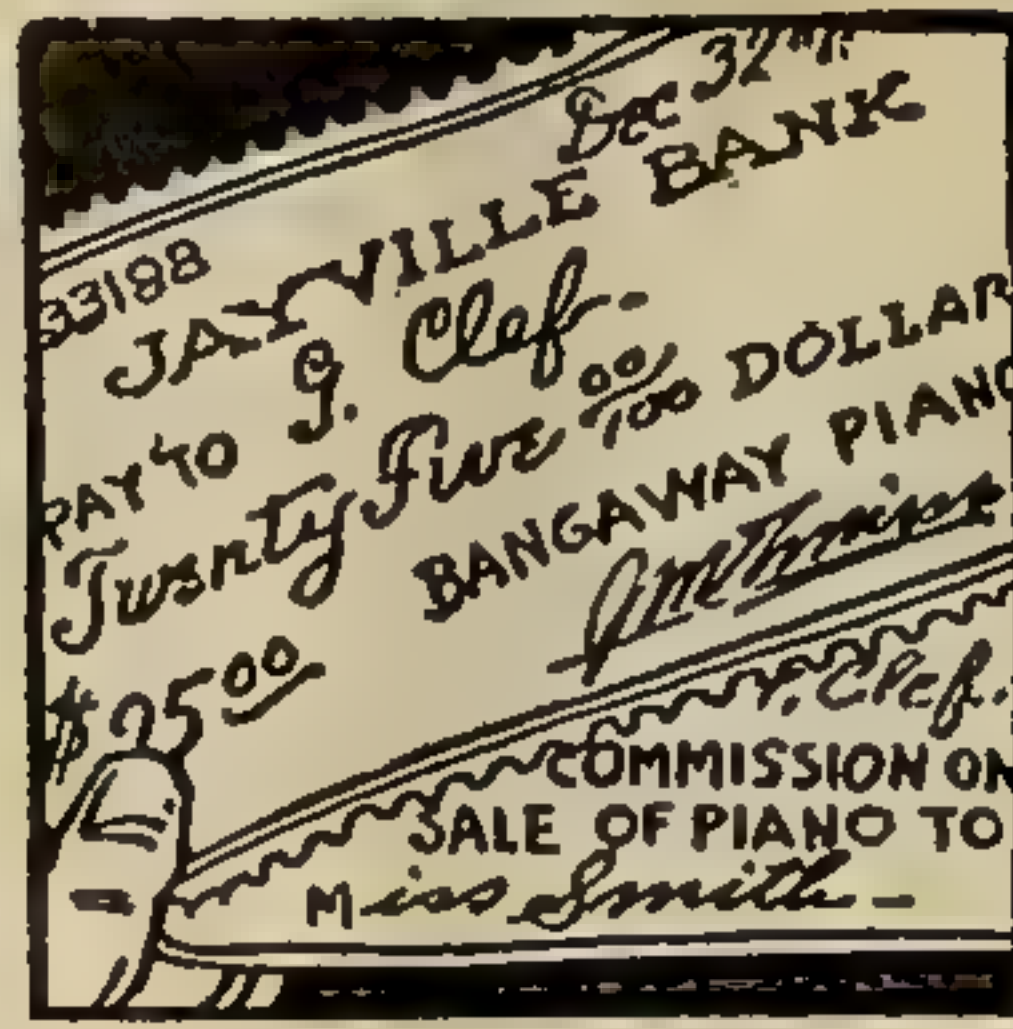 Dec 32nd
33188
JAYVILLE BANK
PAY TO G. Clef
Twenty Five 00/100 DOLLAR
BANGAWAY PIANO
$25 00
Clef.
COMMISSION ON
SALE OF PIANO TO
Miss Smith